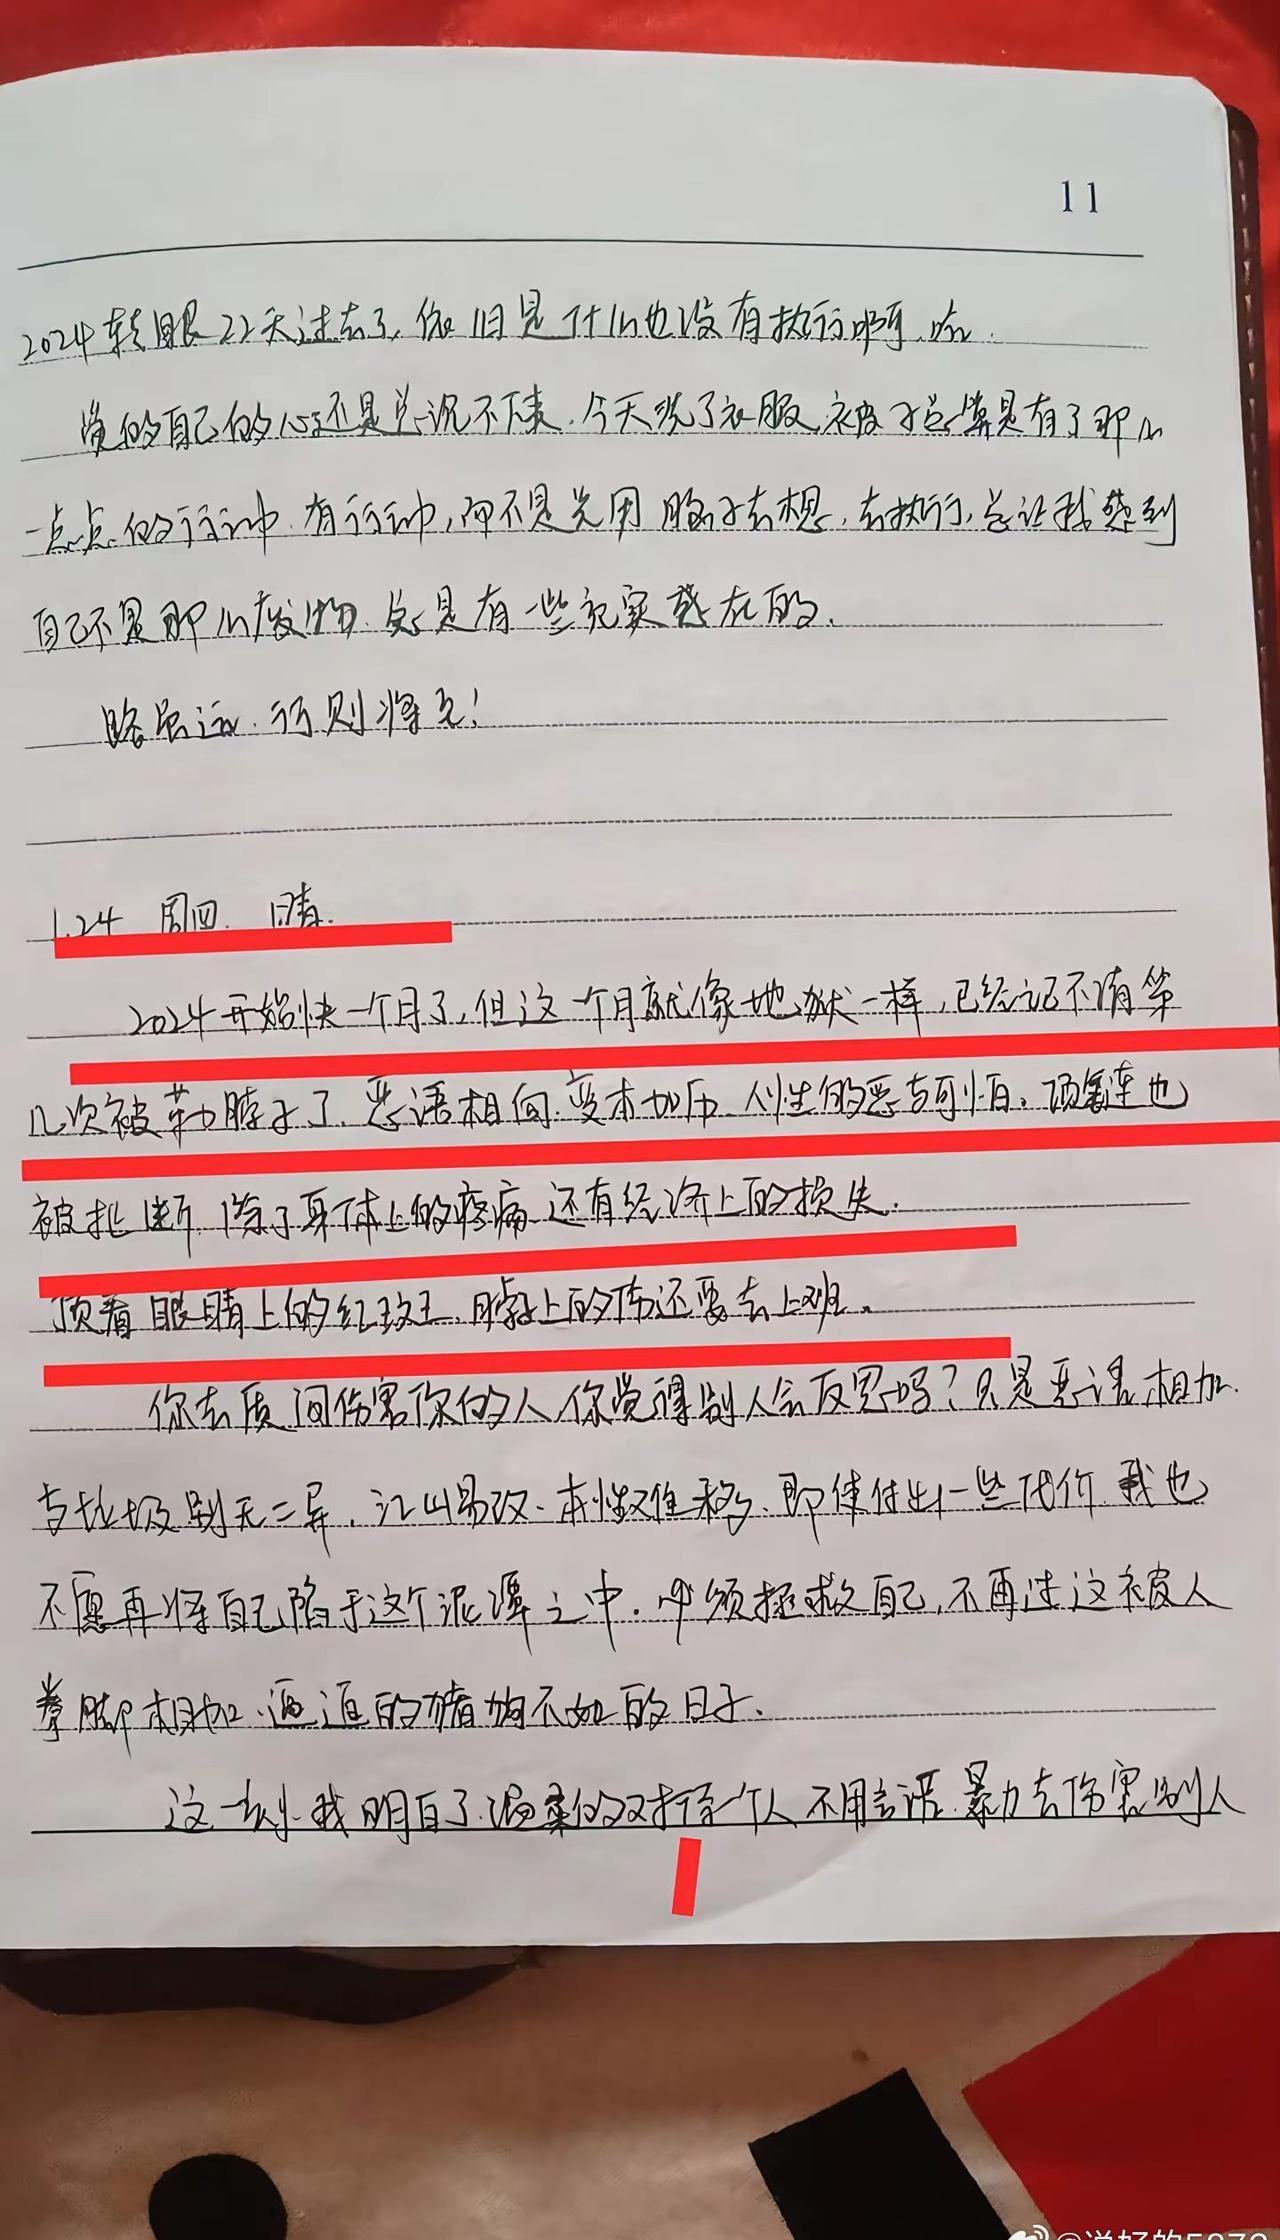 11
2024转眼22天过去了,依旧是什么也没有执行啊,哈.
觉的自己的心还是总沉不下来.今天洗了衣服、被子总算是有了那么
一点点的行动.有行动,而不是光用脑子去想,去执行,总让我感到
自己不是那么废物.总是有一些充实感在的.
路虽远.行则将至!
1.24 周四. 晴.
2024开始快一个月了,但这一个月就像地狱一样,已经记不清第
几次被勒脖子了.恶语相向.变本加厉.人性的恶与可怕.项链也
被扯断.除了身体上的疼痛.还有经济上的损失.
顶着眼睛上的红斑、脖子上的伤还要去上班.
你去质问伤害你的人,你觉得别人会反思吗?只是恶语相加.
与垃圾别无二异.江山易改.本性难移.即使付出一些代价.我也
不愿再将自己陷于这个泥潭之中.必须拯救自己,不再过这被人
拳脚相加.逼迫的猪狗不如的日子.
这一刻.我明白了.温柔的对待一个人.不用言语.暴力去伤害别人